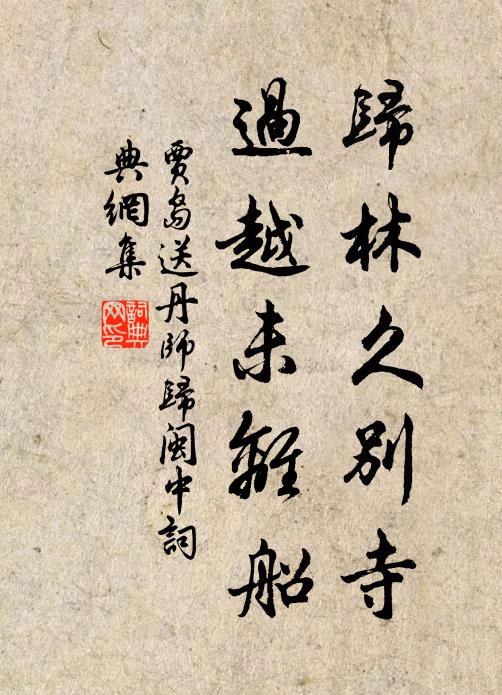 歸林久別寺
過越未離船
賈島送丹師歸閩中詞
典網集
詞典
网印